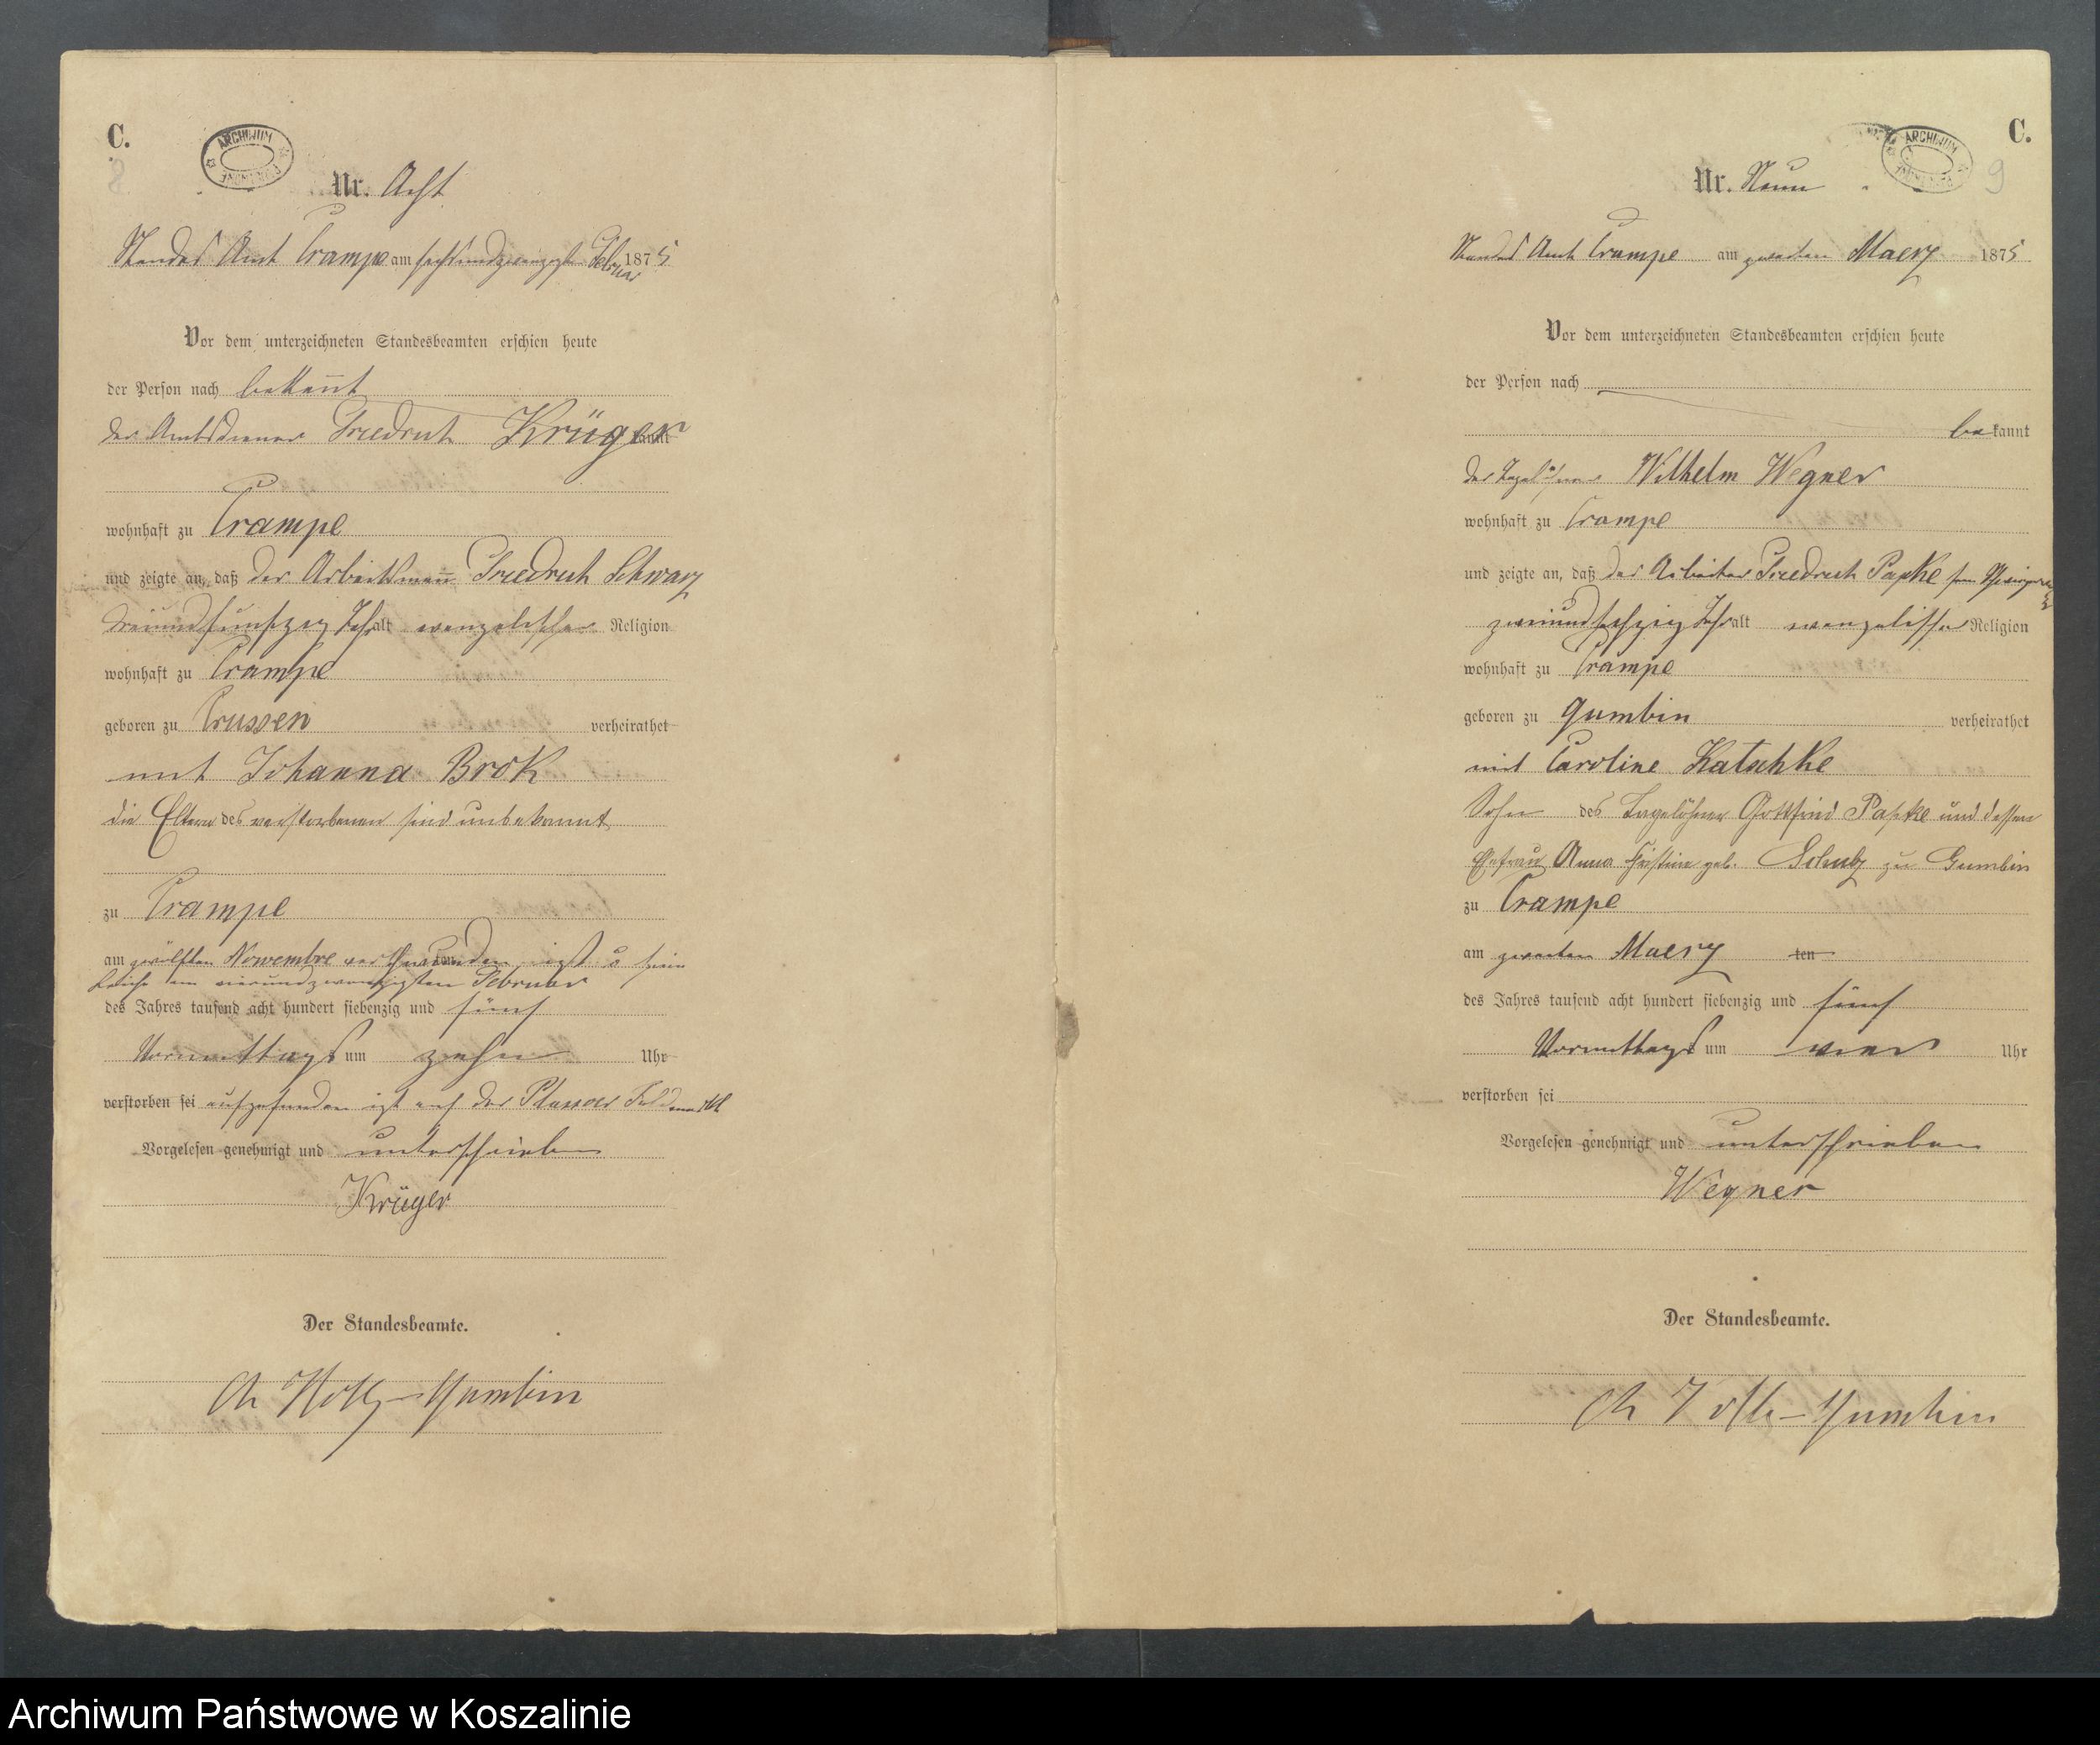 C.
8
ARCHIWUM
Nr. Acht
Standes Amt Crampe am sechsundzwanzigsten Februar 1875
Vor dem unterzeichneten Standesbeamten erschien heute
der Person nach bekannt
der Amtsdiener Friedrich Krüger kannt
wohnhaft zu Crampe
und zeigte an, daß der Arbeitsmann Friedrich Schwarz
dreiundfunfzig Jahr alt evangelischer Religion
wohnhaft zu Crampe
geboren zu Crussen verheirathet
mit Johanna Brok
die Eltern des verstorbenen sind unbekannt
zu Crampe
am zwölften Novembre verschwunden ist u seine
Leiche am vierundzwanzigsten Februar
des Jahres tausend acht hundert siebenzig und fünf
Vormittags um zehn Uhr
verstorben sei aufgefunden ist auf der Plassow Feldmark
Vorgelesen genehmigt und unterschrieben
Krüger
Der Standesbeamte.
Holtz-Gumbin
C.
9
ARCHIWUM
Nr. Neun
Standes Amt Crampe am zweiten Maerz 1875
Vor dem unterzeichneten Standesbeamten erschien heute
der Person nach
bekannt
der Tagelöhner Wilhelm Wegner
wohnhaft zu Crampe
und zeigte an, daß der Arbeiter Friedrich Papke sein
zweiundsechzig Jahr alt evangelischer Religion
wohnhaft zu Crampe
geboren zu Gumbin verheirathet
mit Caroline Katschke
Sohn des Tagelöhner Gottfried Papke und dessen
Ehefrau Anna Christine geb. Schulz zu Gumbin
zu Crampe
am zweiten Maerz ten
des Jahres tausend acht hundert siebenzig und fünf
Vormittags um vier Uhr
verstorben sei
Vorgelesen genehmigt und unterschrieben
Wegner
Der Standesbeamte.
Holtz-Gumbin
Archiwum Państwowe w Koszalinie